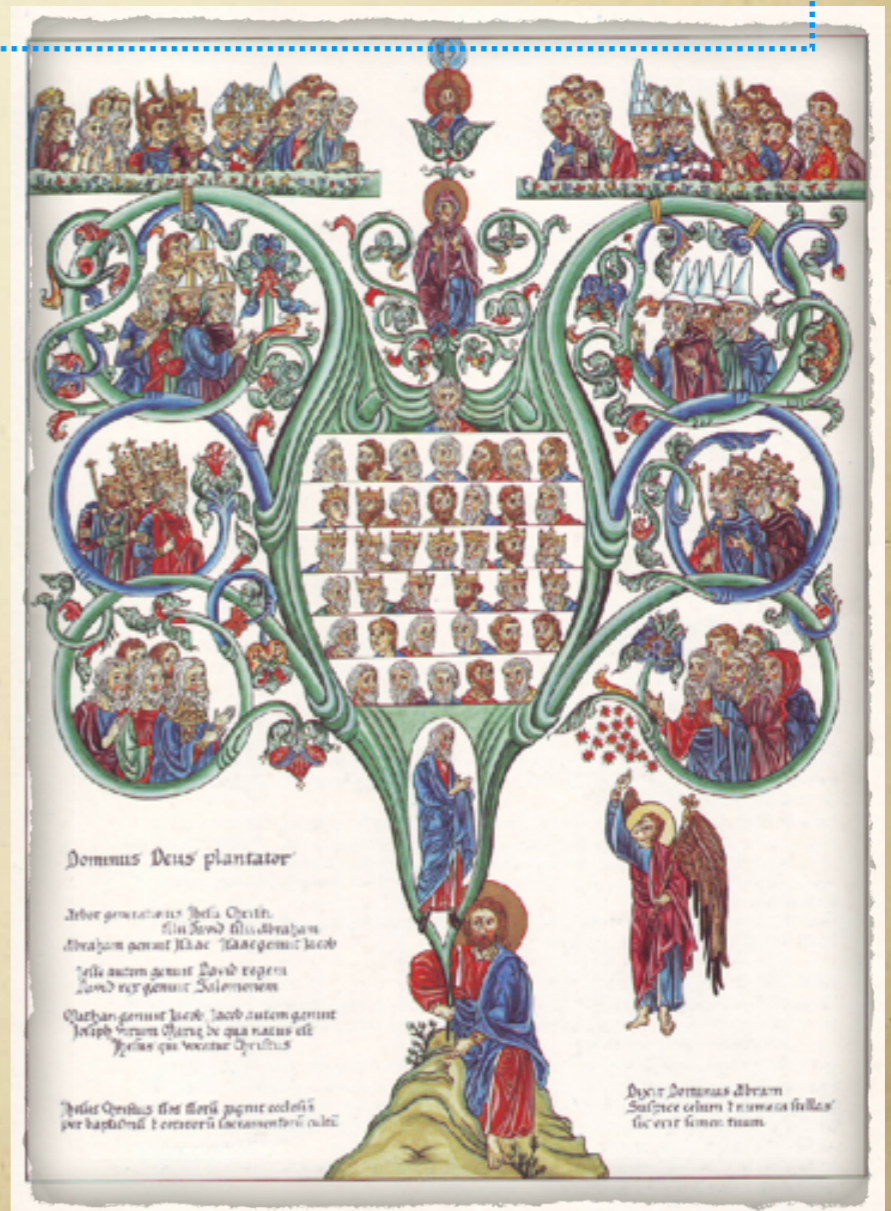 Dominus Deus plantator
Arbor generationis Jhesu Christi
filii David filii Abraham
Abraham genuit Isaac Isaac genuit Jacob
Jesse autem genuit David regem
David rex genuit Salomonem
Mathan genuit Jacob Jacob autem genuit
Joseph virum Marie de qua natus est
Jhesus qui vocatur Christus
Jhesus Christus flos
per
Dixit Dominus Abram
Suspice celum numera stellas
sic erit semen tuum